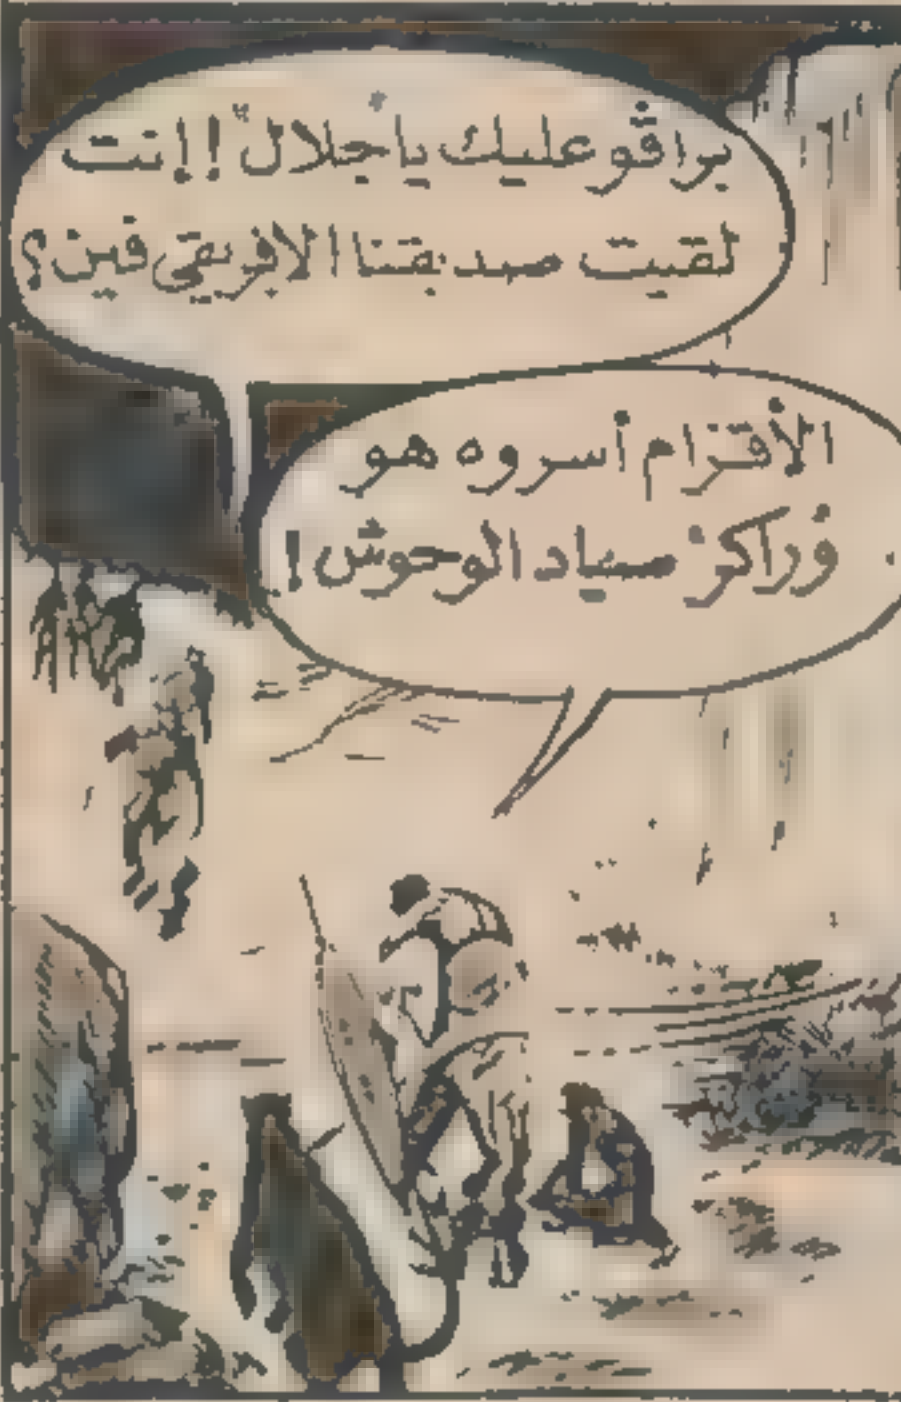 براڤو عليك يا جلال !! إنت
لقيت صديقنا الافريقي فين؟
الأقزام أسروه هو
وزاكز صياد الوحوش !